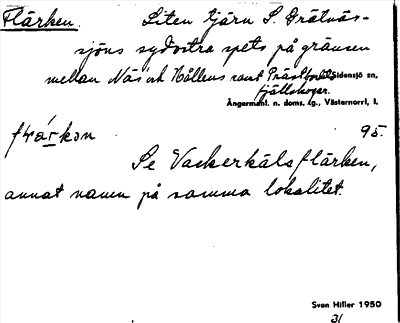 Flärken. Liten tjärn S. Grätnäs-
sjöns sydöstra spets på gränsen
mellan Näs och Hållens samt Prästbordets Sidensjö sn,
fjällskogar.
Ångermanl. n. doms. tg., Västernorrl. l.
95.
Se Vaskerkälsflärken,
annat namn på samma lokalitet.
Sven Hiller 1950
31